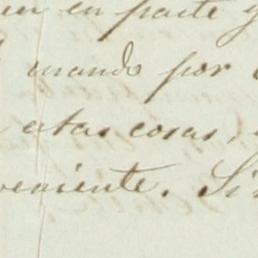 en parte y
mando por
estas cosas,
veniente. Si